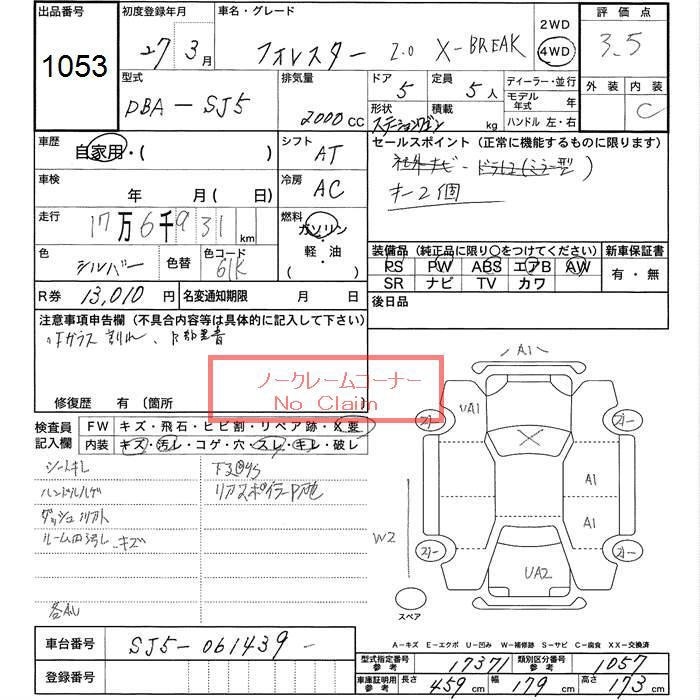 出品番号
1053
初度登録年月
27 3月
車名・グレード
フォレスター 2.0 X-BREAK
2WD
4WD
評価点
3.5
外装 内装
C
型式
DBA-SJ5
排気量
2000cc
ドア
5
定員
5人
形状
ステーションワゴン
積載
kg
ディーラー・並行
モデル年式 年
ハンドル 左・右
車歴
自家用・( )
シフト
AT
セールスポイント (正常に機能するものに限ります)
社外ナビ・ドラレコ(ミラー型)
キー2個
車検
年 月( 日)
冷房
AC
走行
17万6千931km
燃料
ガソリン
・
軽・油
・( )
色
シルバー
色替
色コード
61K
装備品 (純正品に限り○をつけてください)
PS PW ABS エアB AW
SR ナビ TV カワ
新車保証書
有・無
R券 13,010円
名変通知期限 月 日
後日品
注意事項申告欄 (不具合内容等は具体的に記入して下さい)
Fガラス割れ、
修復歴 有 (箇所 )
ノークレームコーナー
No Claim
検査員記入欄
FW キズ・飛石・ヒビ割・リペア跡・X要
内装 キズ・汚レ・コゲ・穴・スレ・キレ・破レ
シートキレ
ハンドルハゲ
ダッシュ
ルーム内汚レ、キズ
各ALキ
下廻サビ
リアスポイラー
A1
UA1
A1
A1
W2
UA2
スペア
A-キズ E-エクボ U-凹み W-補修跡 S-サビ C-腐食 XX-交換済
車台番号 SJ5-061439-
登録番号
型式指定番号 参考 17371
類別区分番号 参考 1057
車庫証明用 参考 長さ 459cm 幅 179cm 高さ 173cm